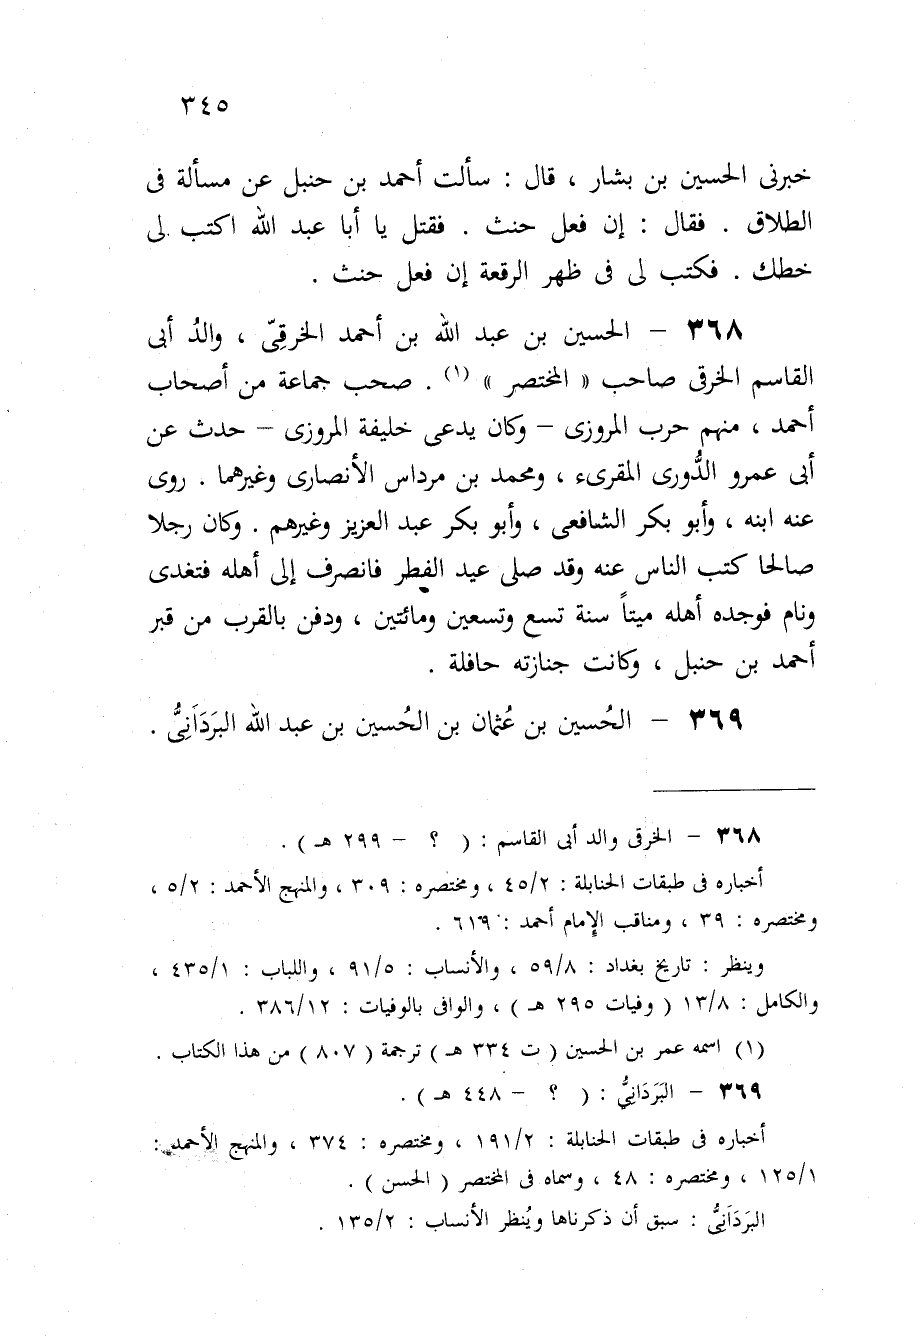 ٣٤٥
خبرنى الحسين بن بشار ، قال : سألت أحمد بن حنبل عن مسألة فى
الطلاق . فقال : إن فعل حنث . فقتل يا أبا عبد الله اكتب لى
خطك . فكتب لى فى ظهر الرقعة إن فعل حنث .
٣٦٨ – الحسين بن عبد الله بن أحمد الخرقِىّ ، والدُ أبى
القاسم الخرقى صاحب « المختصر » (١) . صحب جماعة من أصحاب
أحمد ، منهم حرب المروزى – وكان يدعى خليفة المروزى – حدث عن
أبى عمرو الدُّورى المقرىء ، ومحمد بن مرداس الأنصارى وغيرهما . روى
عنه ابنه ، وأبو بكر الشافعى ، وأبو بكر عبد العزيز وغيرهم . وكان رجلا
صالحا كتب الناس عنه وقد صلى عيد الفطر فانصرف إلى أهله فتغدى
ونام فوجده أهله ميتاً سنة تسع وتسعين ومائتين ، ودفن بالقرب من قبر
أحمد بن حنبل ، وكانت جنازته حافلة .
٣٦٩ – الحُسين بن عُثمان بن الحُسين بن عبد الله البَرَدَانِىُّ .
٣٦٨ – الخرقى والد أبى القاسم : ( ؟ – ٢٩٩ هـ ) .
أخباره فى طبقات الحنابلة : ٤٥/٢ ، ومختصره : ٣٠٩ ، والمنهج الأحمد : ٥/٢ ،
ومختصره : ٣٩ ، ومناقب الإمام أحمد : ٦١٩ .
وينظر : تاريخ بغداد : ٥٩/٨ ، والأنساب : ٩١/٥ ، واللباب : ٤٣٥/١ ،
والكامل : ١٣/٨ ( وفيات ٢٩٥ هـ ) ، والوافى بالوفيات : ٣٨٦/١٢ .
(١) اسمه عمر بن الحسين ( ت ٣٣٤ هـ ) ترجمة ( ٨٠٧ ) من هذا الكتاب .
٣٦٩ – البَرَدَانِىُّ : ( ؟ – ٤٤٨ هـ ) .
أخباره فى طبقات الحنابلة : ١٩١/٢ ، ومختصره : ٣٧٤ ، والمنهج الأحمد :
١٢٥/١ ، ومختصره : ٤٨ ، وسماه فى المختصر ( الحسن ) .
البَرَدَانِىُّ : سبق أن ذكرناها ويُنظر الأنساب : ١٣٥/٢ .